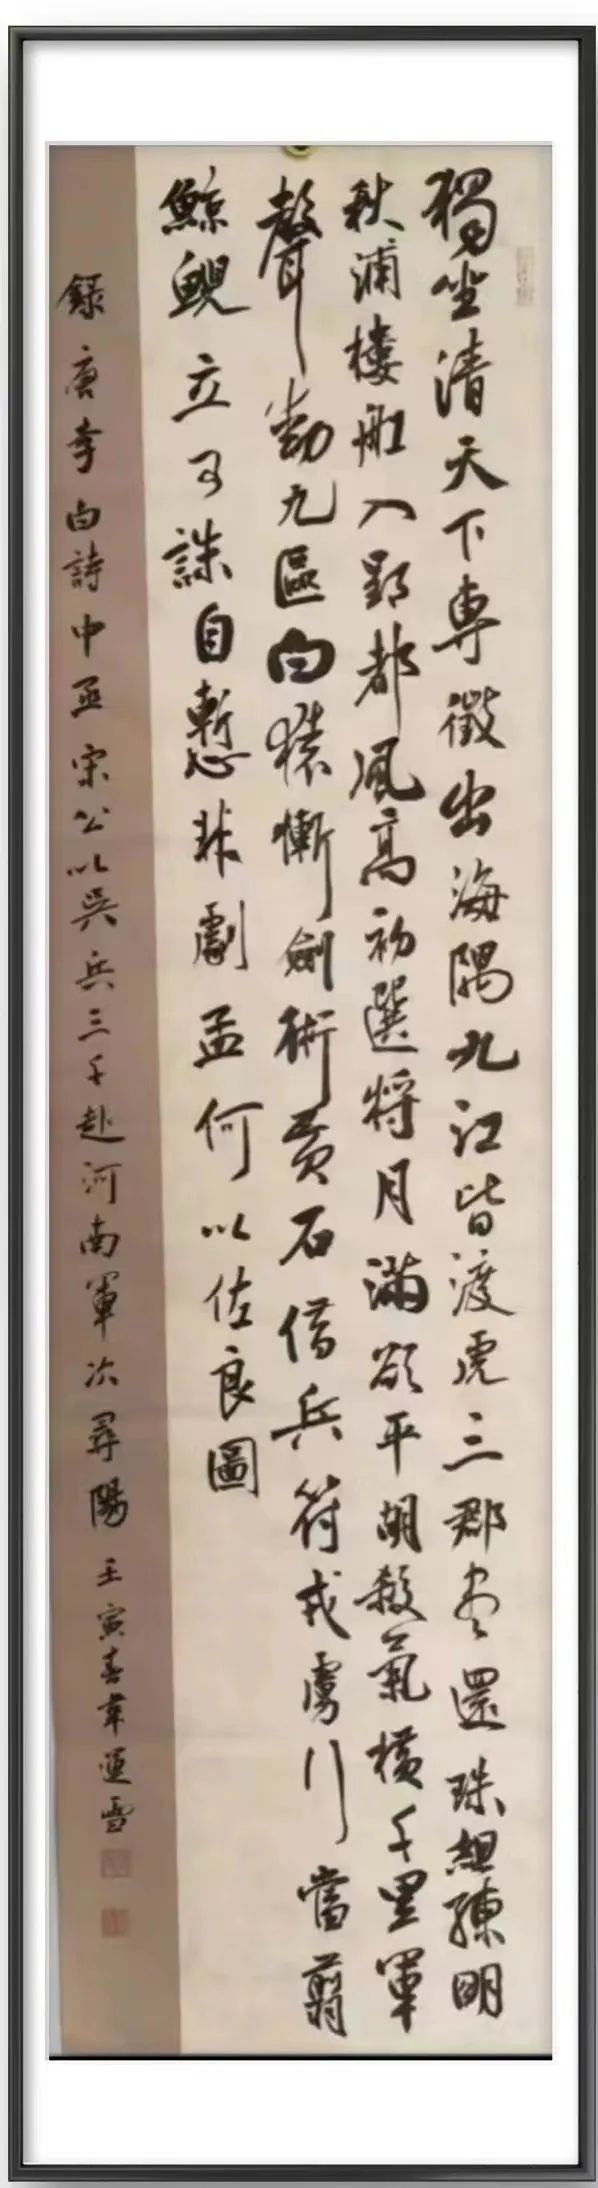 獨坐清天下專徵出海隅九江皆渡虎三郡盡還珠組練明
秋浦樓舡入郢都風高初選將月滿欲平胡殺氣橫千里軍
聲動九區白猿慚劍術黃石借兵符戎虜行當翦
鯨鯢立可誅自慙非劇孟何以佐良圖
錄唐李白詩中丞宋公以吳兵三千赴河南軍次尋陽 壬寅春韋運雪